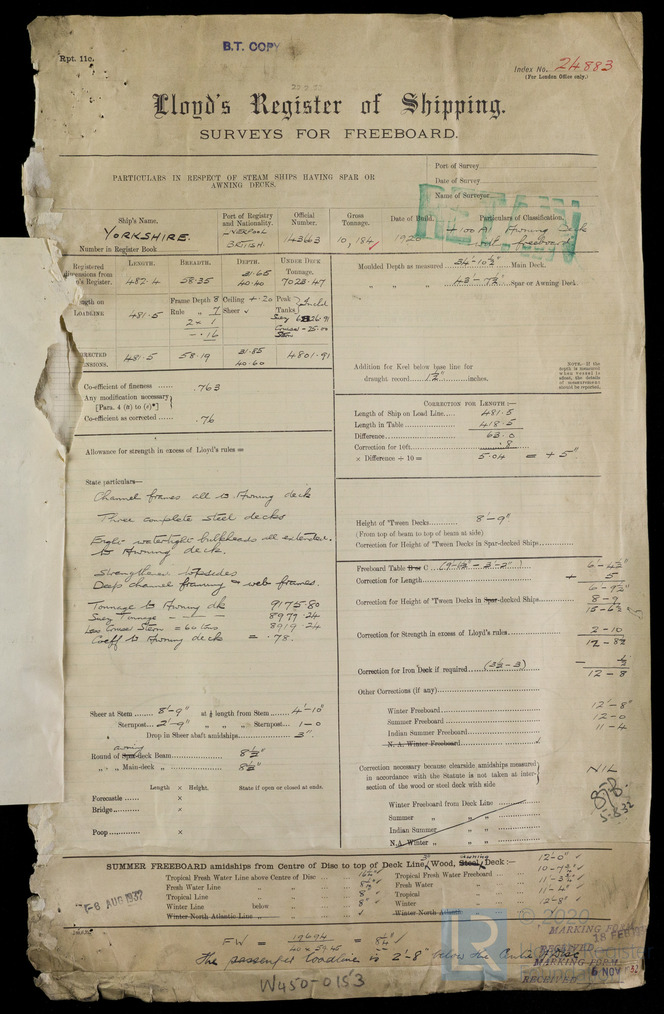 B.T. COPY
Rpt. 11c.
Index No. 24883
(For London Office only.)
Lloyd's Register of Shipping.
SURVEYS FOR FREEBOARD.
PARTICULARS IN RESPECT OF STEAM SHIPS HAVING SPAR OR
AWNING DECKS.
Port of Survey
Date of Survey
Name of Surveyor
Ship's Name.
Port of Registry
and Nationality.
Official
Number.
Gross
Tonnage.
Date of Build.
Particulars of Classification.
YORKSHIRE.
LIVERPOOL
BRITISH
143663
10,184
1920
+100 A1 Awning Deck
with freeboard
Number in Register Book
Registered
dimensions from
Register.
LENGTH.
BREADTH.
DEPTH.
UNDER DECK
Tonnage.
482.4
58.35
31.65
40.40
7023.47
Length on
LOADLINE
481.5
Frame Depth 8
Rule " 7
2 × 1
- .16
Ceiling + .20
Sheer
Peak
Tanks
481.5
58.19
31.85
40.60
4801.91
Moulded Depth as measured 34'-10½" Main Deck.
" " " 43'-7½" Spar or Awning Deck.
Addition for Keel below base line for
draught record 1½" inches.
NOTE.—If the
depth is measured
when vessel is
afloat, the details
of measurement
should be reported.
Co-efficient of fineness .763
Any modification necessary
[Para. 4 (b) to (e)*]
Co-efficient as corrected .76
CORRECTION FOR LENGTH:—
Length of Ship on Load Line 481.5
Length in Table 418.5
Difference 63.0
Correction for 10ft. .8
× Difference ÷ 10 = 5.04 = + 5".
Allowance for strength in excess of Lloyd's rules =
State particulars—
Channel frames all to Awning deck
Three complete steel decks
Eight watertight bulkheads all extended
to Awning deck.
Strengthened topsides
Deep channel framing = web frames.
Tonnage to Awning dk 9175.80
8977.24
8919.24
Coeff to Awning deck = .78.
Height of 'Tween Decks 8'-9"
(From top of beam to top of beam at side)
Correction for Height of 'Tween Decks in Spar-decked Ships
Freeboard Table C 6'-4½"
Correction for Length + 5
6-9½"
Correction for Height of 'Tween Decks in Spar-decked Ships 8-9
15-6½
Correction for Strength in excess of Lloyd's rules 2-10
Correction for Iron Deck if required (3½-3) - ½
12-8
Other Corrections (if any)
Winter Freeboard 12'-8"
Summer Freeboard 12-0
Indian Summer Freeboard 11-4
N. A. Winter Freeboard
Sheer at Stem 8'-9" at ⅛ length from Stem 4'-10"
Sternpost 2'-9" " " " Sternpost 1-0
Drop in Sheer abaft amidships 3".
awning
Round of Spar-deck Beam 8½"
" " Main-deck " 8½"
Length × Height. State if open or closed at ends.
Forecastle ×
Bridge ×
Poop ×
Correction necessary because clearside amidships measured
in accordance with the Statute is not taken at inter-
section of the wood or steel deck with side
NIL
5-8-32
Winter Freeboard from Deck Line
Summer " " "
Indian Summer " "
N.A. Winter " " "
SUMMER FREEBOARD amidships from Centre of Disc to top of Deck Line, Wood, Steel, Deck:— 12-0"
Tropical Fresh Water Line above Centre of Disc 16½"
Fresh Water Line " " 8½"
Tropical Line " " 8"
Winter Line below " 8"
Winter North Atlantic Line "
Tropical Fresh Water Freeboard 10-7½"
Fresh Water " 11-3¾"
Tropical " 11-4"
Winter " 12-8"
Winter North Atlantic
8 AUG 1932
FW = 19694 / 40 × 59.45 = 8¼"
The passenger loadline is 2'-8" below the Centre of Disc
© 2020
Lloyd's Register
Foundation
LR
MARKING FORM
RECEIVED
MARKING FORM
RECEIVED 6 NOV 32
W450-0153